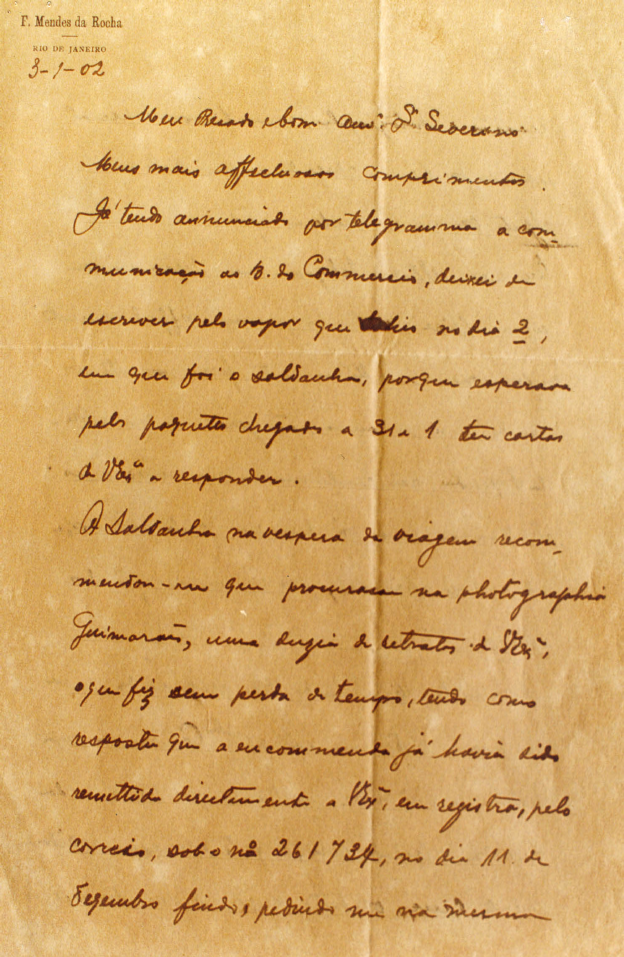 F. Mendes da Rocha
RIO DE JANEIRO
3-1-02
Meu Presado e bom Amo. Sr. Severano
Meus mais affectuosos comprimentos.
Já tendo annunciado por telegramma a com-
municação ao B. do Commercio, deixei de
escrever pelo vapor que sahio no dia 2,
em que foi o Saldanha, porque esperava
pelos paquetes chegados a 31 e 1 ter cartas
de VExa. a responder.
A Saldanha na vespera da viagem recom-
mendou-me que procurasse na photographia
Guimarães, uma duzia de retratos de VExa.,
o que fiz sem perda de tempo, tendo como
resposta que a encommenda já havia sido
remettida directamente a VExa., em registro, pelo
correio, sob o nº 261734, no dia 11 de
Dezembro findo, pedindo me na mesma